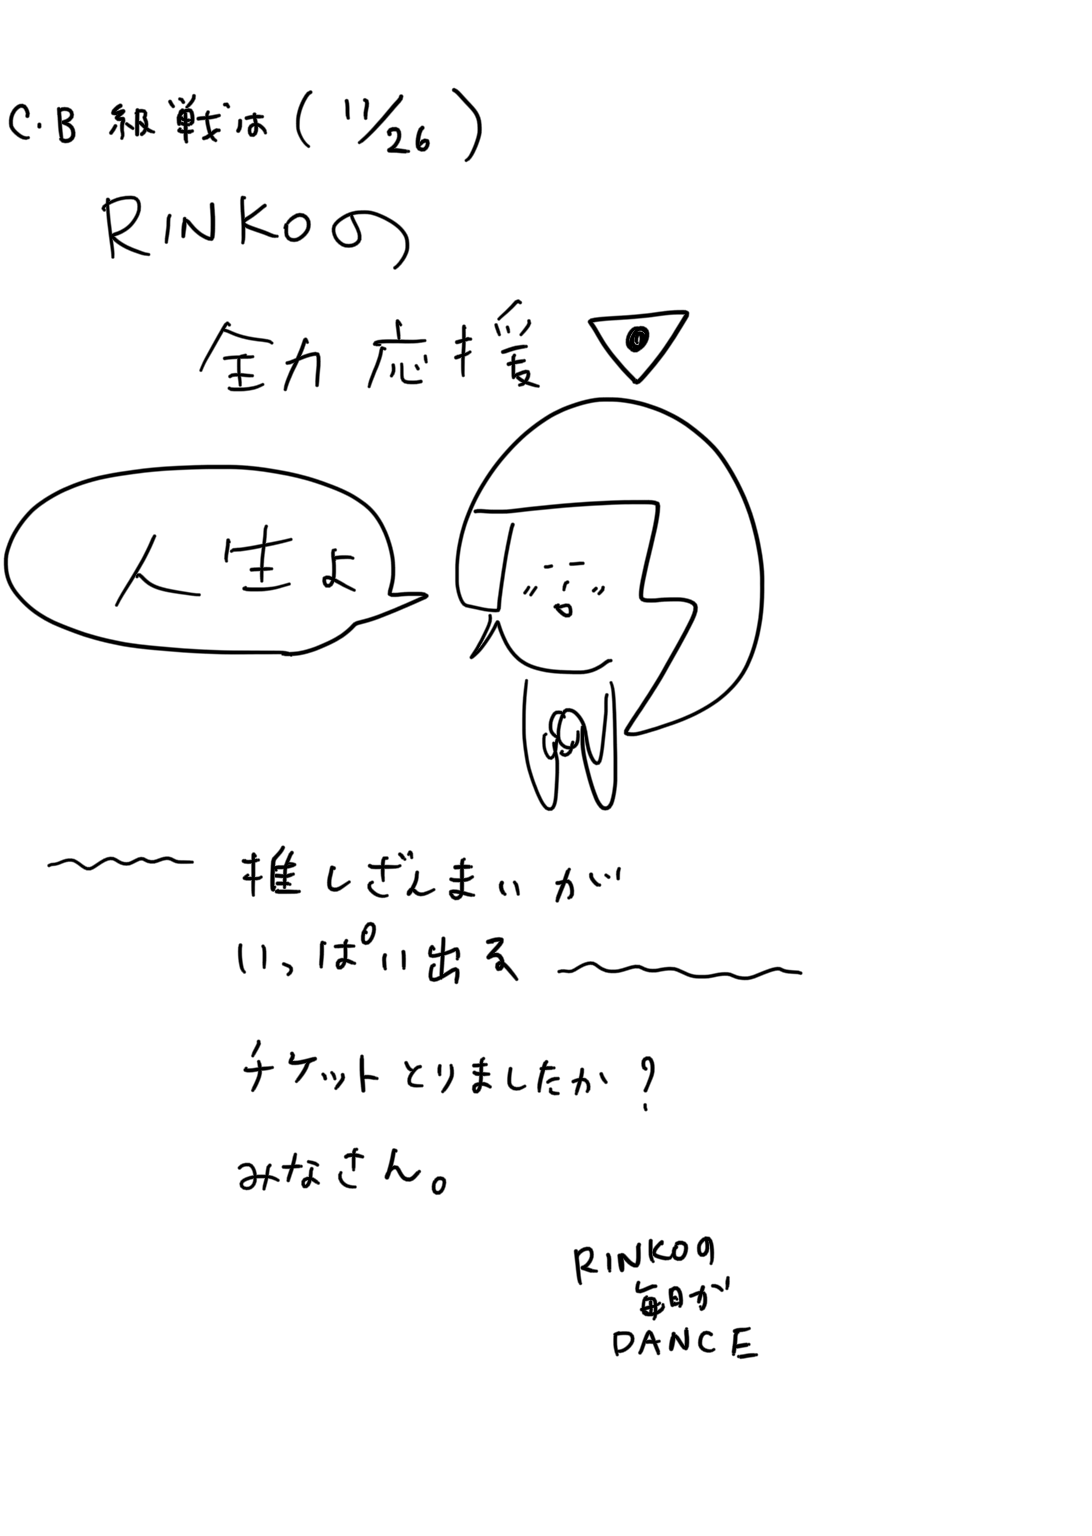 C.B 級戦は (11/26)
RINKOの
全力応援
人生よ
推しざんまいが
いっぱい出る
チケットとりましたか?
みなさん。
RINKOの
毎日が
DANCE